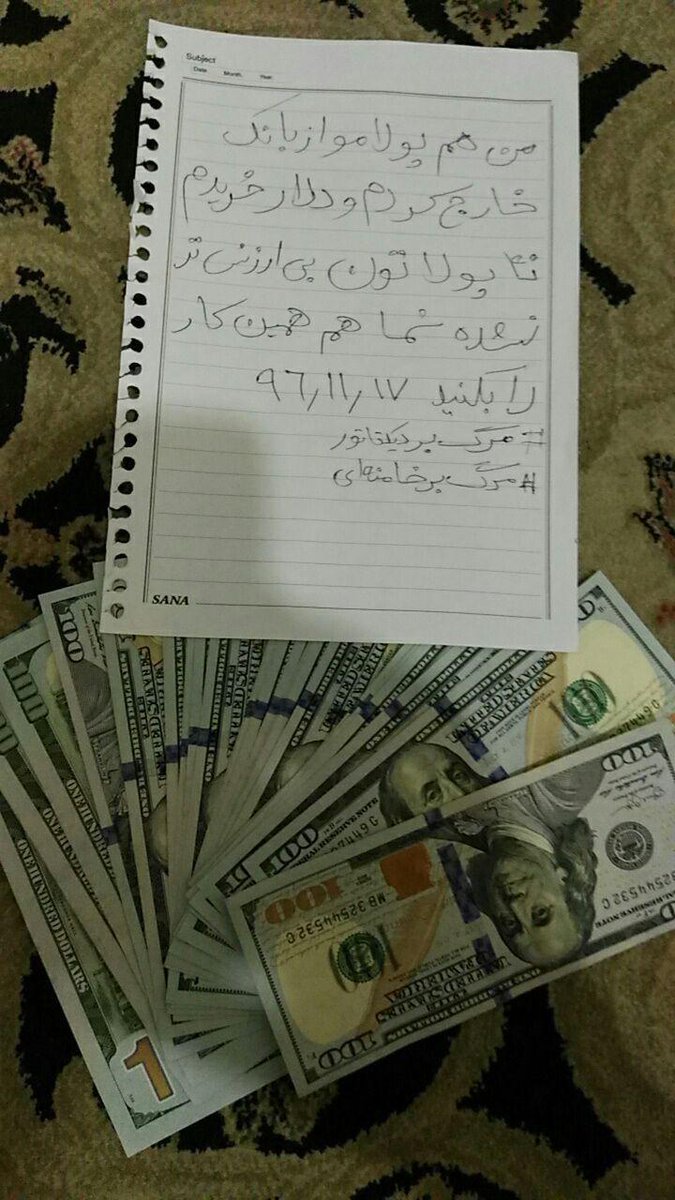 Subject
Date Month Year
من هم پولامو از بانک
خارج کردم و دلار خریدم
تا پولاتون بی ارزش تر
نشده شما هم همین کار
را بکنید ۹۶/۱۱/۱۷
#مرگ_بر_دیکتاتور
#مرگ_بر_خامنه‌ای
SANA
100
ONE HUNDRED DOLLARS
100
FEDERAL RESERVE NOTE
100
MB 32544532 C
100
MB 32544532 C
100